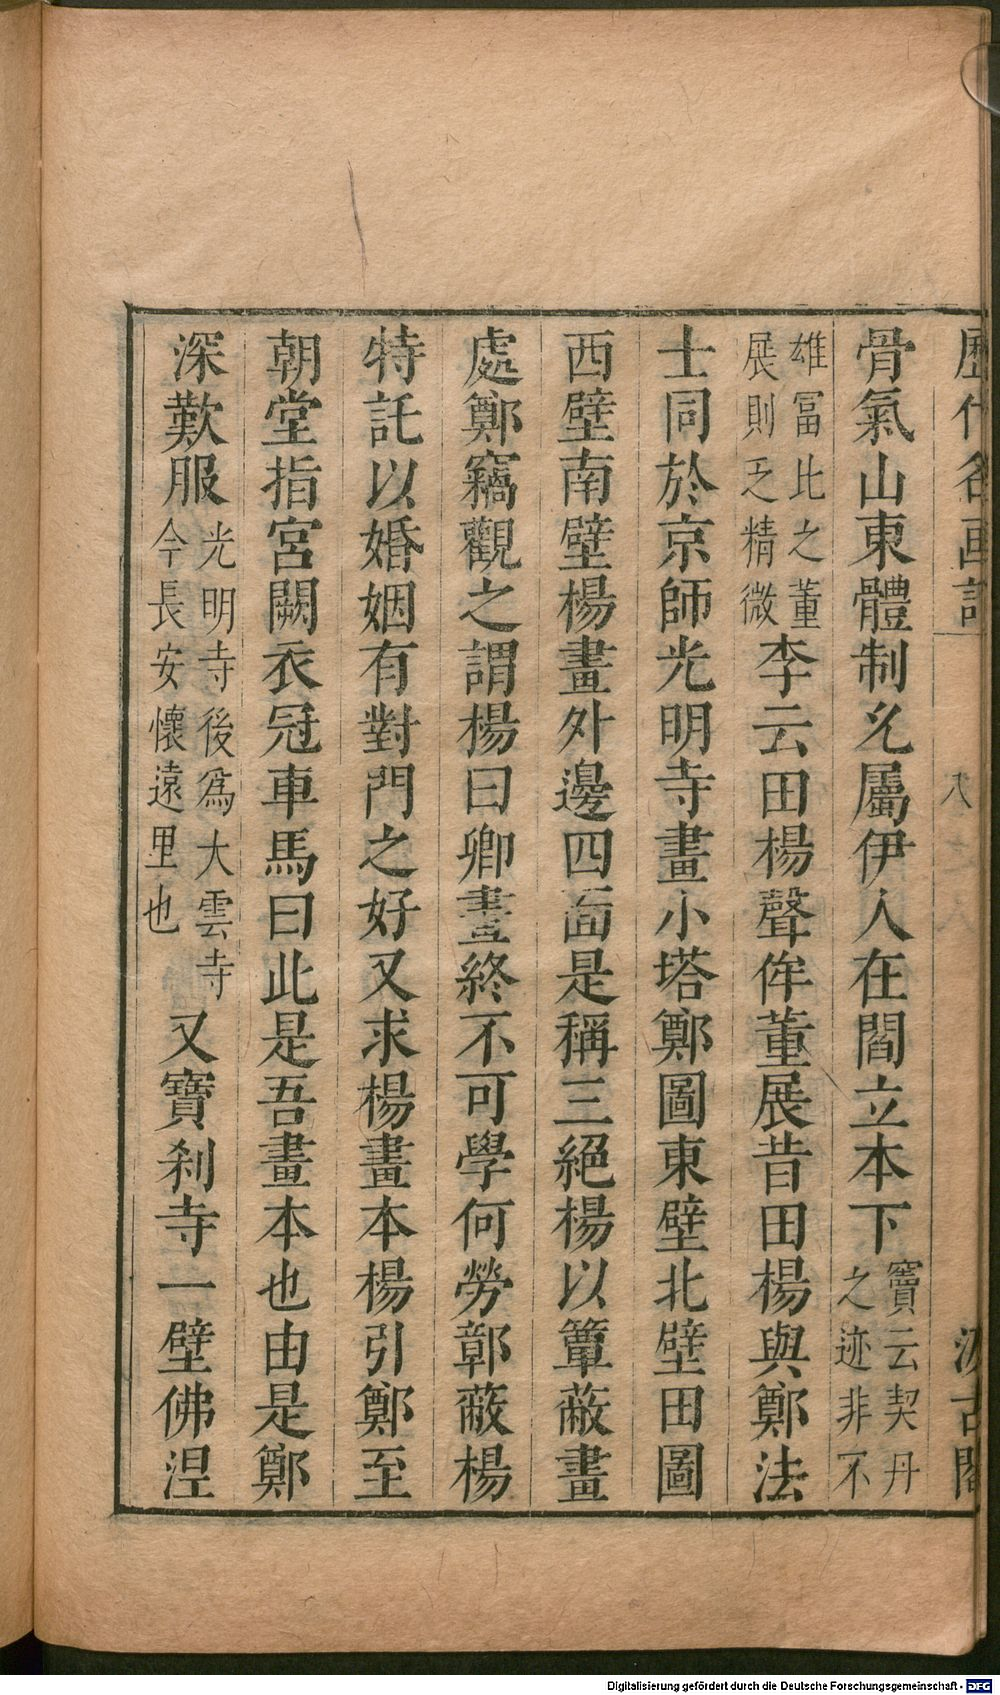 歷代名画記
八
汲古閣
骨氣山東體制允屬伊人在閻立本下竇云契丹之迹非不
雄富比之董展則乏精微李云田楊聲侔董展昔田楊與鄭法
士同於京師光明寺畫小塔鄭圖東壁北壁田圖
西壁南壁楊畫外邊四面是稱三絕楊以簟蔽畫
處鄭竊觀之謂楊曰卿畫終不可學何勞鄣蔽楊
特託以婚姻有對門之好又求楊畫本楊引鄭至
朝堂指宮闕衣冠車馬曰此是吾畫本也由是鄭
深歎服光明寺後爲大雲寺今長安懷遠里也又寶刹寺一壁佛涅
Digitalisierung gefördert durch die Deutsche Forschungsgemeinschaft - DFG